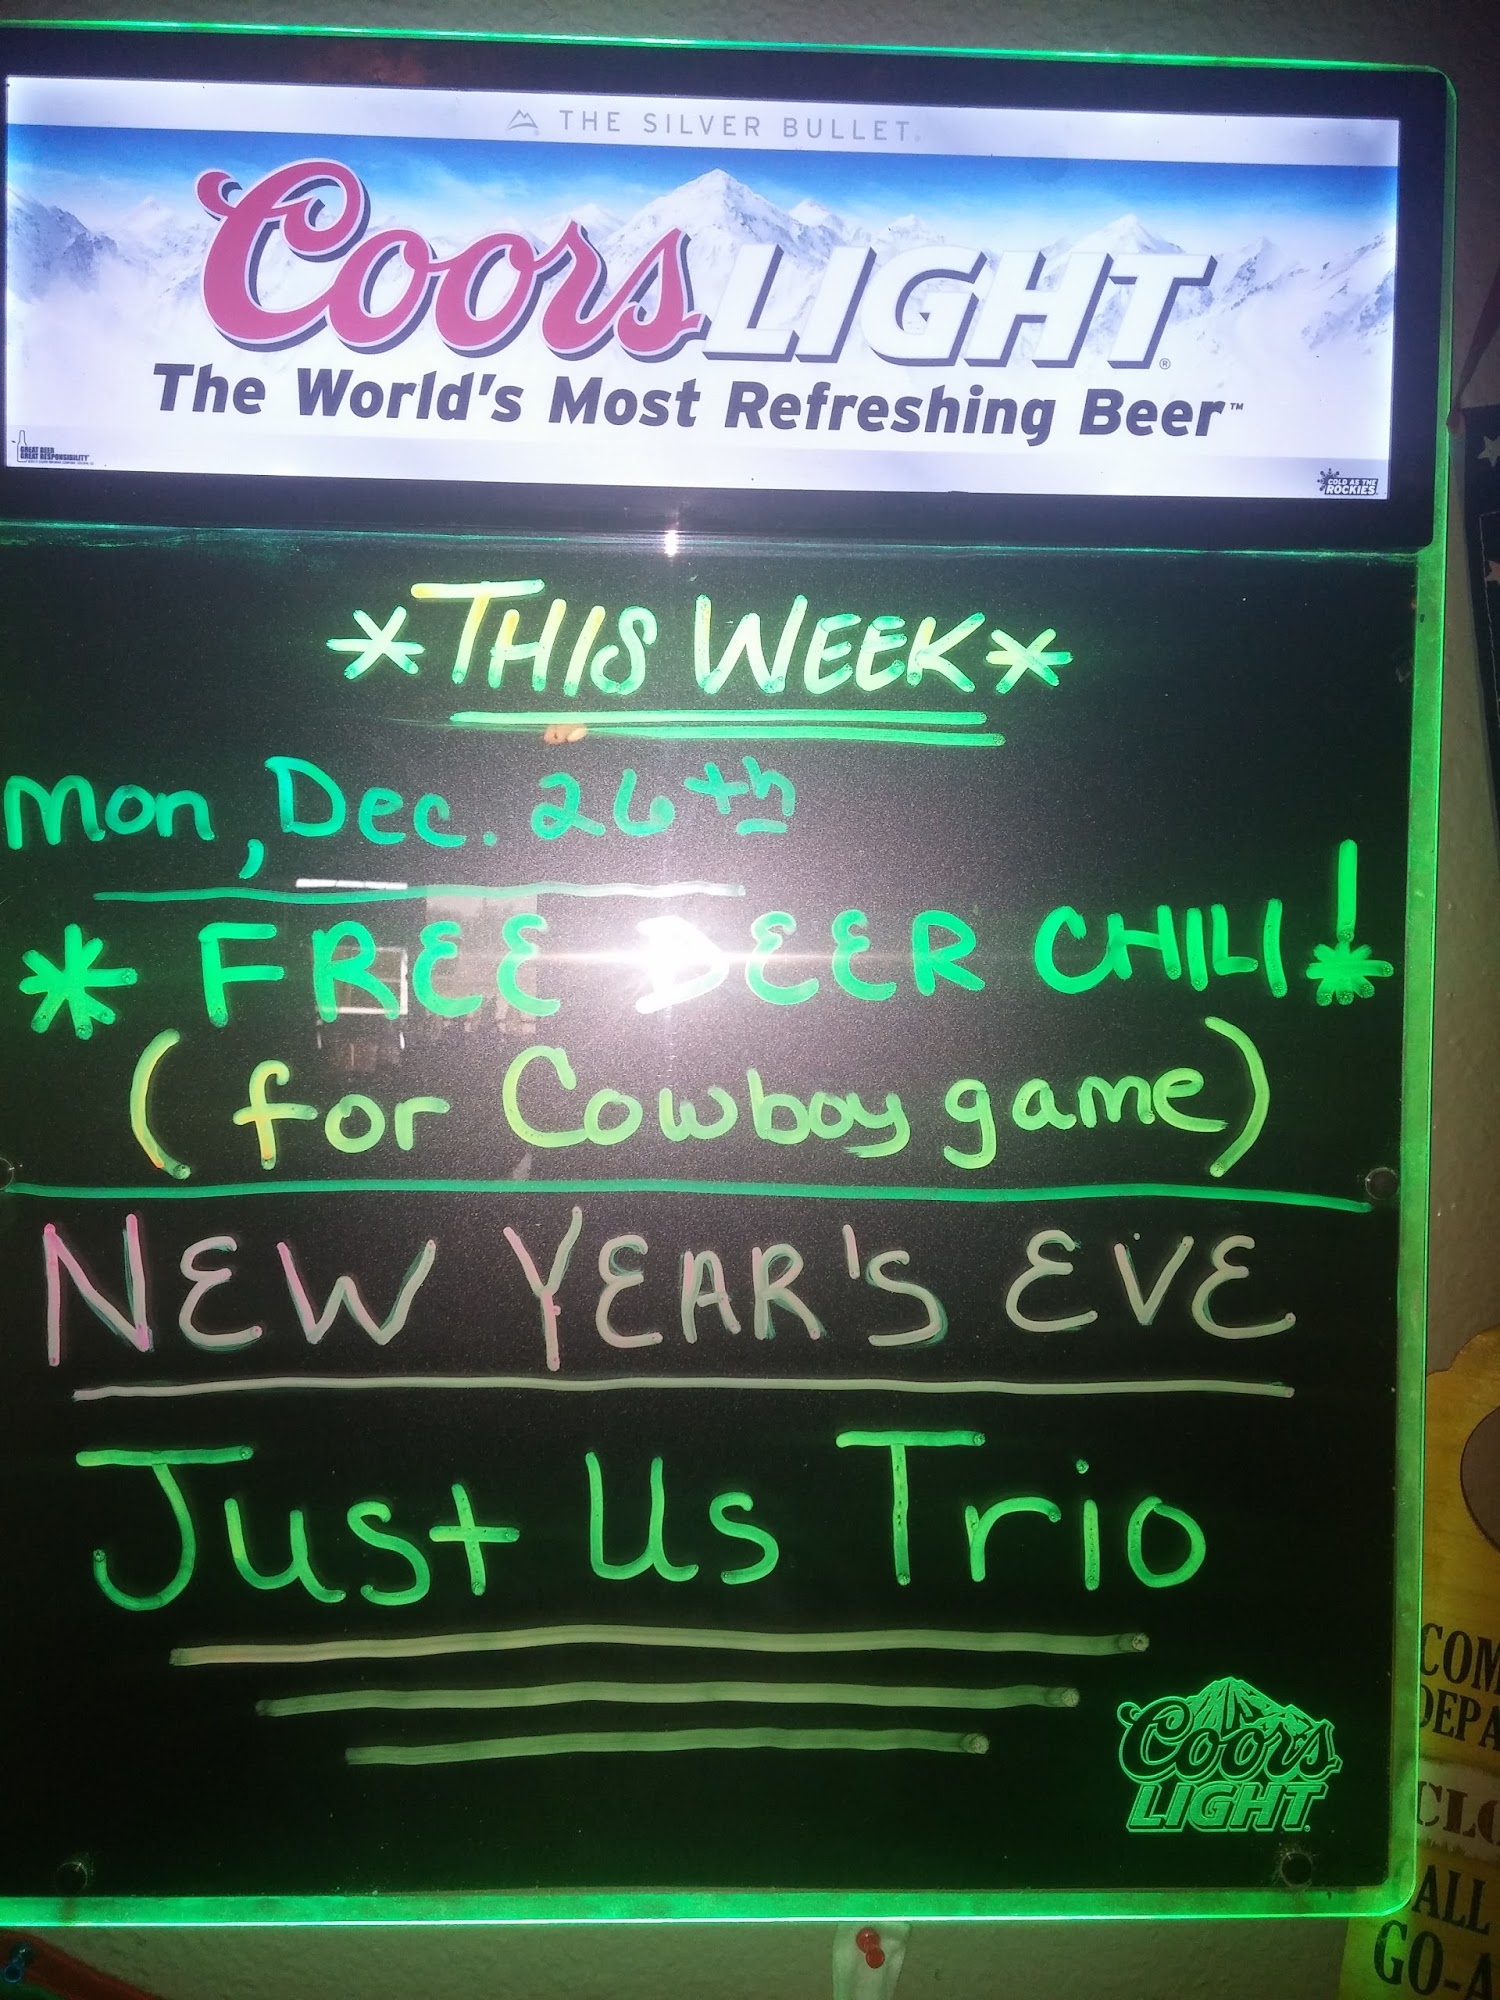 THE SILVER BULLET.
Coors LIGHT®
The World's Most Refreshing Beer™
GREAT BEER
GREAT RESPONSIBILITY
COLD AS THE
ROCKIES
*THIS WEEK*
Mon, Dec. 26th
* FREE BEER CHILI!
(for Cowboy game)
NEW YEAR'S EVE
Just Us Trio
Coors
LIGHT
COM
DEPA
CLO
ALL
GO-A